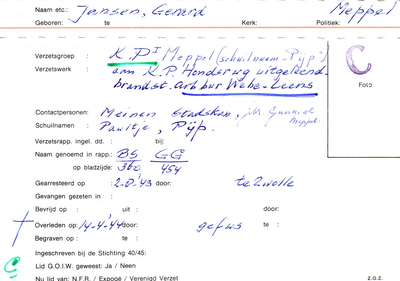 Naam etc.: Jansen, Gerard Meppel
Geboren: te Kerk: Politiek:
Verzetsgroep : K.P. Meppel (schuilnaam "Pijp")
Verzetswerk : aan K.P. Hondsrug uitgeleend
brandst. Arb bur Wehe-Leens
Foto
Contactpersonen: Meinen
Schuilnamen : Pijp.
Verzetsrapp. ingel. dd. : bij:
Naam genoemd in rapp.: BS GG
op bladzijde: 360 454
Gearresteerd op : 2-8-'43 door: te Zwolle
Gevangen gezeten in :
Bevrijd op : uit : door:
Overleden op : 14-4-'44 door: gefus te :
Begraven op : te :
Ingeschreven bij de Stichting 40/45:
Lid G.O.I.W. geweest: Ja / Neen
Nu lid van: N.F.R. / Expogé / Verenigd Verzet z.o.z.